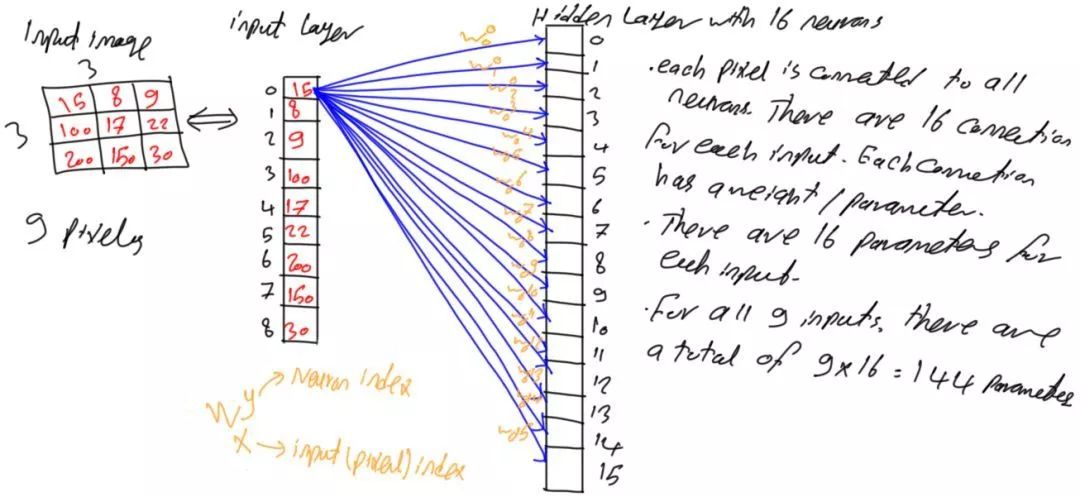 Input image
3
3
15 8 9
100 17 22
200 150 30
9 pixels
input Layer
0 15
1 8
2 9
3 100
4 17
5 22
6 200
7 150
8 30
W y → Neuron index
x → input (pixel) index
Hidden Layer with 16 neurons
0
1
2
3
4
5
6
7
8
9
10
11
12
13
14
15
.each pixel is connected to all
neurons. There are 16 connection
for each input. Each connection
has a weight / parameter.
. There are 16 parameters for
each input.
.For all 9 inputs, there are
a total of 9x16 = 144 parameters